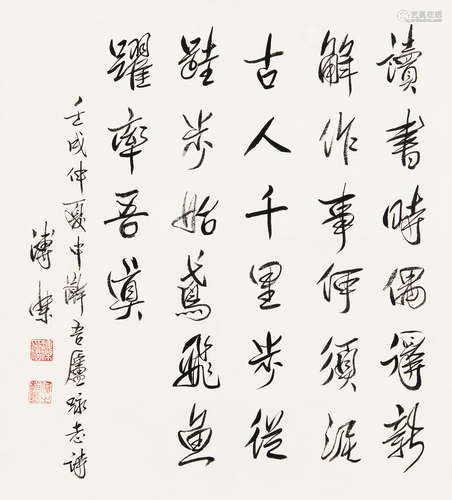 讀書時偶繹新
解作事何須泥
古人千里步從
跬步始鳶飛魚
躍率吾真
壬戌仲夏中澣吾廬詠志詩
溥傑